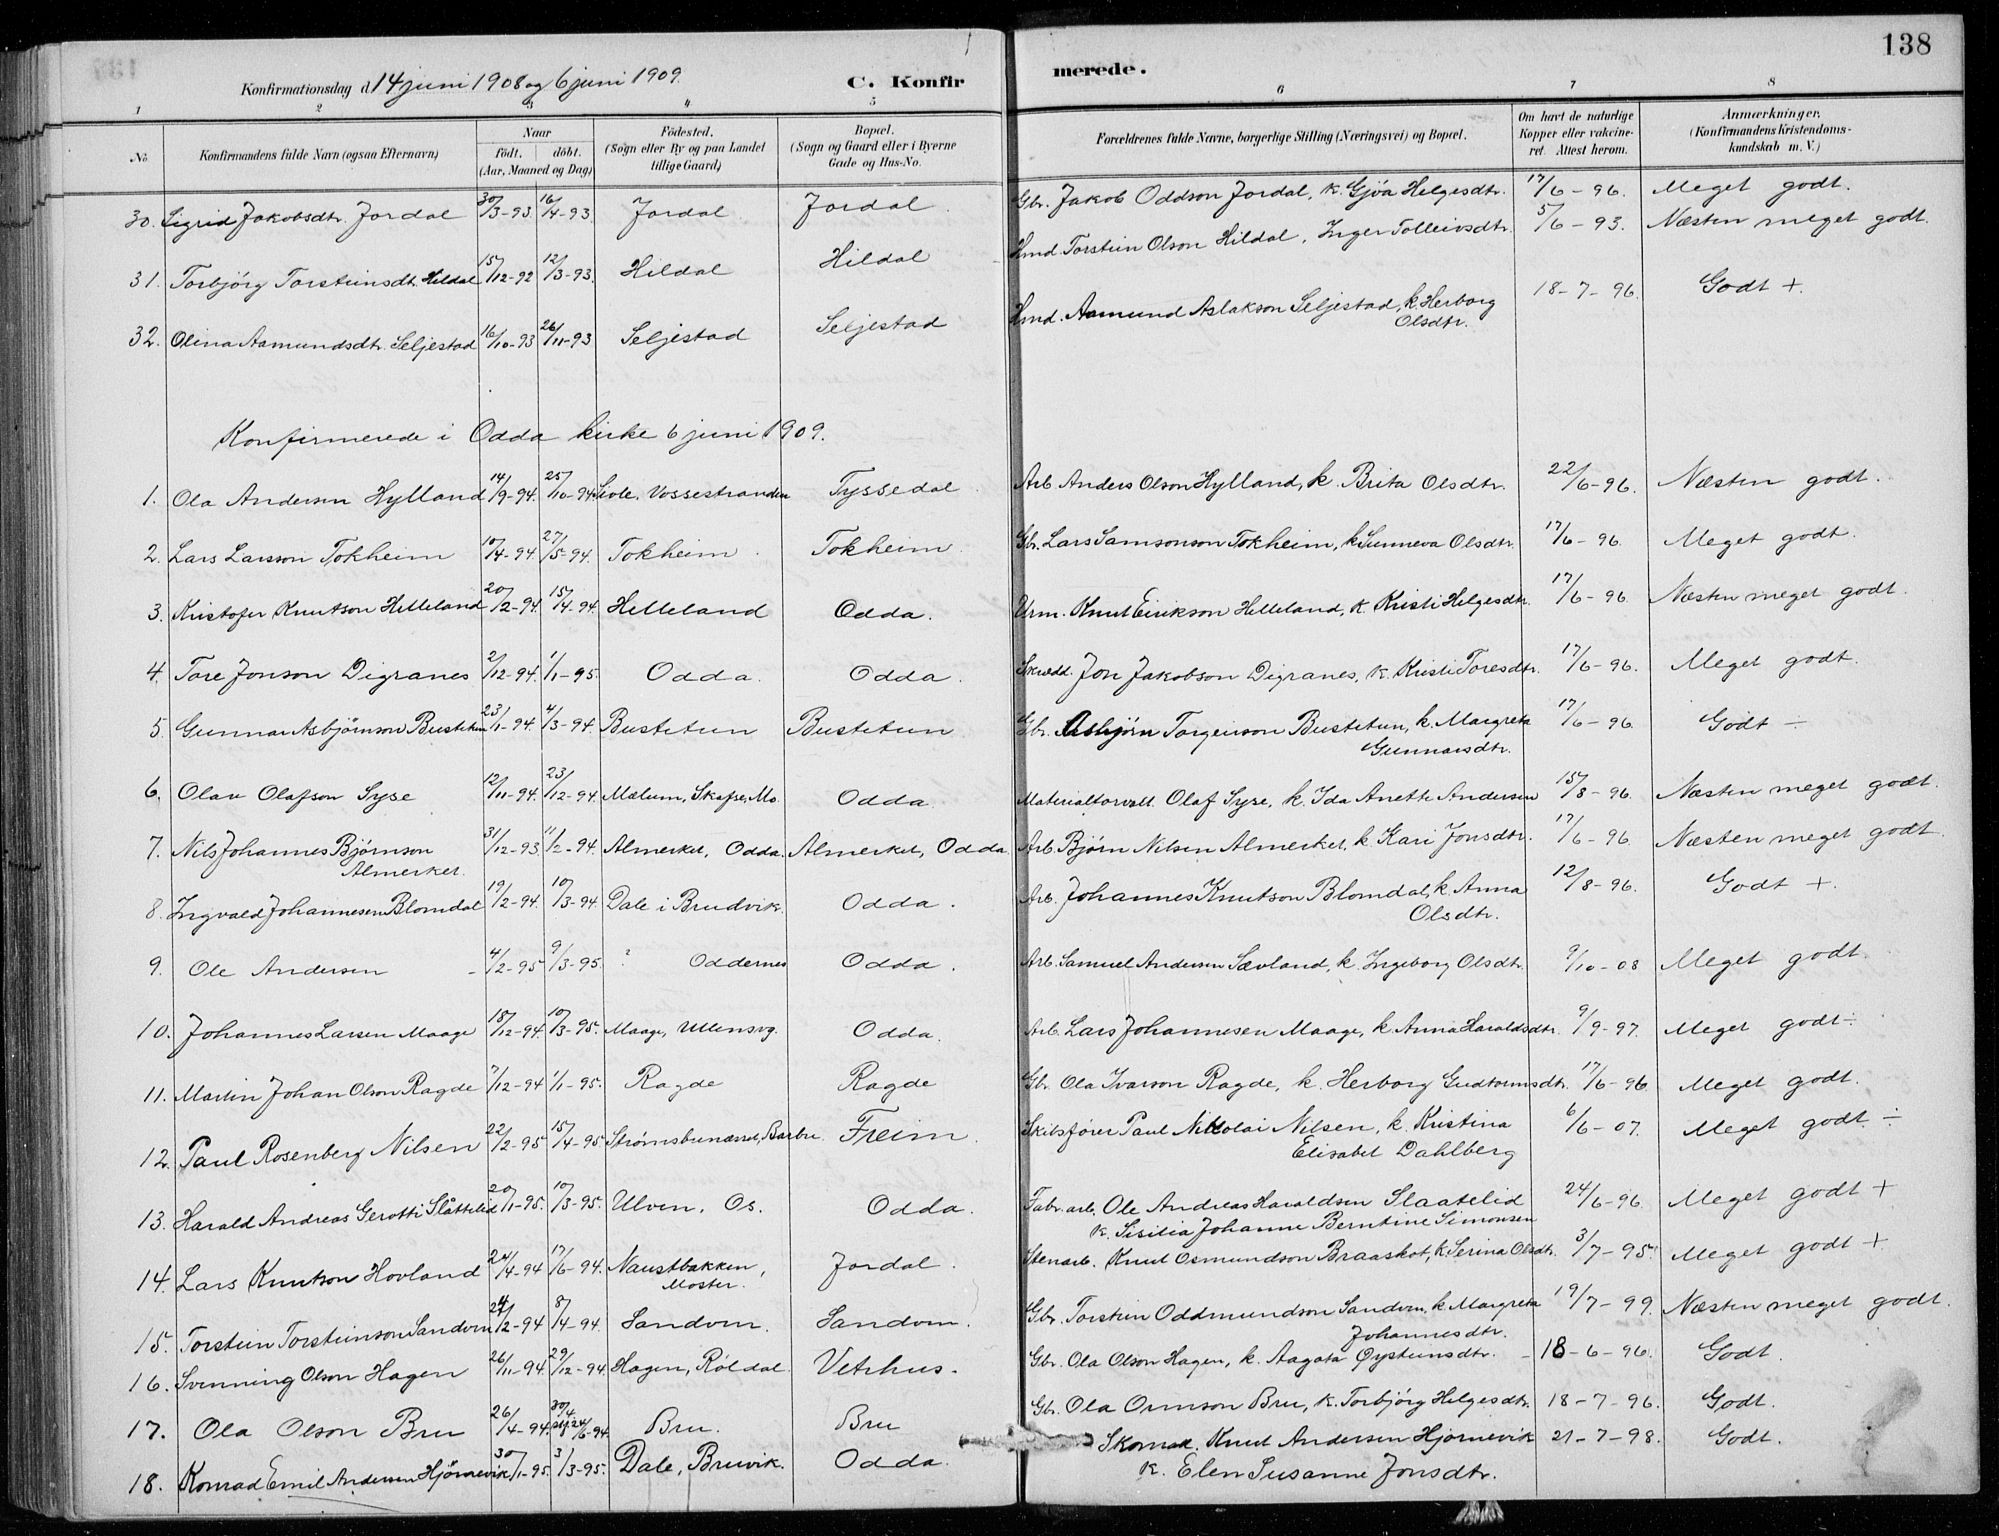 138
Konfirmationsdag d. 14 juni 1908 og 6 juni 1909. C. Konfirmerede.
1 2 3 4 5 6 7 8
No. Konfirmandens fulde Navn (ogsaa Efternavn) Naar født. døbt. (Aar, Maaned og Dag) Fødested. (Sogn eller By og paa Landet tillige Gaard) Bopæl. (Sogn og Gaard eller i Byerne Gade og Hus-No. Forældrenes fulde Navne, borgerlige Stilling (Næringsvei) og Bopæl. Om havt de naturlige Kopper eller vakcineret. Attest herom. Anmærkninger. (Konfirmandens Kristendomskundskab m. V.)
30. Sigrid Jakobsdtr. Jordal 30/3-93. 16/4-93 Jordal. Jordal. Gbr. Jakob Oddson Jordal, k. Gjøa Helgesdtr. 17/6-96. Meget godt.
31. Torbjörg Torsteinsdt. Hildal 15/12-92 12/3-93. Hildal Hildal Hmd. Torstein Olson Hildal, Inger Tolleivsdtr. 5/6-93. Næsten meget godt.
32. Olina Aamundsdtr. Seljestad 16/10-93 26/11-93 Seljestad Seljestad Hmd. Aamund Aslakson Seljestad, k. Herborg Olsdtr. 18-7-96. Godt +.
Konfirmerede i Odda kirke 6 juni 1909.
1. Ola Andersen Hylland 14/9-94. 25/10-94 Vossestranden Tyssedal Arb. Anders Olson Hylland, k. Brita Olsdtr. 22/6-96. Næsten godt.
2. Lars Larsson Tokheim 10/4-94. 27/5-94. Tokheim. Tokheim. Gbr. Lars Samsonson Tokheim, k Sunneva Olsdtr. 17/6-96. Meget godt.
3. Kristofer Knutson Helleland 20/2-94. 15/4-94. Helleland Odda. Knut Eirikson Helleland, k. Kristi Helgesdtr. 17/6-96. Næsten meget godt.
4. Tore Jonson Digranes 2/12-94. 1/1-95. Odda. Odda. Skrædd. Jon Jakobson Digranes, k. Kristi Toresdtr. 17/6-96. Meget godt.
5. Gunnar Asbjørnson Bustetun 23/1-94 4/3-94 Bustetun Bustetun Gbr. Asbjørn Torgeirson Bustetun, k. Margreta Gunnarsdtr. 17/6-96. Godt ÷
6. Olav Olafson Syse 12/11-94. 23/12-94. Mælum, Skafse, Mo. Odda. Materialforvalt. Olaf Syse, k. Ida Anette Andersen 15/8-96. Næsten meget godt.
7. Nils Johannes Bjørnson Almerket. 31/12-93 11/2-94. Almerket, Odda. Almerket, Odda Arb. Bjørn Nilsen Almerket, k. Kari Jonsdtr. 17/6-96 Næsten meget godt.
8. Ingvald Johannesen Blomdal 19/2-94. 10/3-94. Dale i Brudvik. Odda. Arb. Johannes Knutson Blomdal, k. Anna Olsdtr. 12/8-96. Godt +.
9. Ole Andersen - 4/2-95 9/3-95. ? Oddernes Odda. Arb. Samuel Andersen Sævland, k. Ingeborg Olsdtr. 9/10-08 Meget godt.
10. Johannes Larsen Maage 18/12-94. 10/3-95. Maage, Ullensvg. Odda. Arb. Lars Johannesen Maage, k Anna Haraldsdtr. 9/9-97. Meget godt ÷
11. Martin Johan Olson Ragde 7/12-94 1/1-95. Ragde Ragde Gbr. Ola Ivarson Ragde, k. Herborg Gudtormsdtr. 17/6-96 Meget godt.
12. Paul Rosenberg Nilsen 22/2-95 15/4-95 Strømsbuneset, Barbu. Freim. Skibsfører Paul Nikolai Nilsen, k. Kristina Elisabet Dahlberg 6/6-07. Meget godt ÷
13. Harald Andreas Gerotti Slåttelid 20/1-95. 10/3-95. Ulven, Os. Odda. Fabr. arb. Ole Andreas Haraldsen Slaatelid k. Sisilia Johanne Berntine Simonsen 24/6-96. Meget godt +
14. Lars Knutson Hovland 24/4-94 17/6-94. Naustbakken, Moster. Jordal. Stenarb. Knut Osmundson Braaskot, k. Serina Olsdtr. 3/7-95. Meget godt +
15. Torstein Torsteinson Sandven /2-94 8/4-94. Sandven. Sandven. Gbr. Torstein Oddmundson Sandven, k. Margreta Johannesdtr. 19/7-99. Næsten meget godt.
16. Svenning Olson Hagen 26/11-94. 29/12-94. Hagen, Röldal. Vetrhus. Gbr. Ola Olson Hagen, k. Aagata Øysteinsdtr. - 18-6-96. Godt.
17. Ola Olson Bru 26/4-94. 30/4 24/6-94. Bru. Bru Gbr. Ola Ormson Bru, k. Torbjörg Helgesdtr. 18-7-96. Godt.
18. Konrad Emil Andersen Hjørnevik 30/1-95. 3/3-95. Dale, Bruvik. Odda. Skomak. Knut Andersen Hjørnevik k. Elen Susanne Jonsdtr. 21-7-98. Godt.